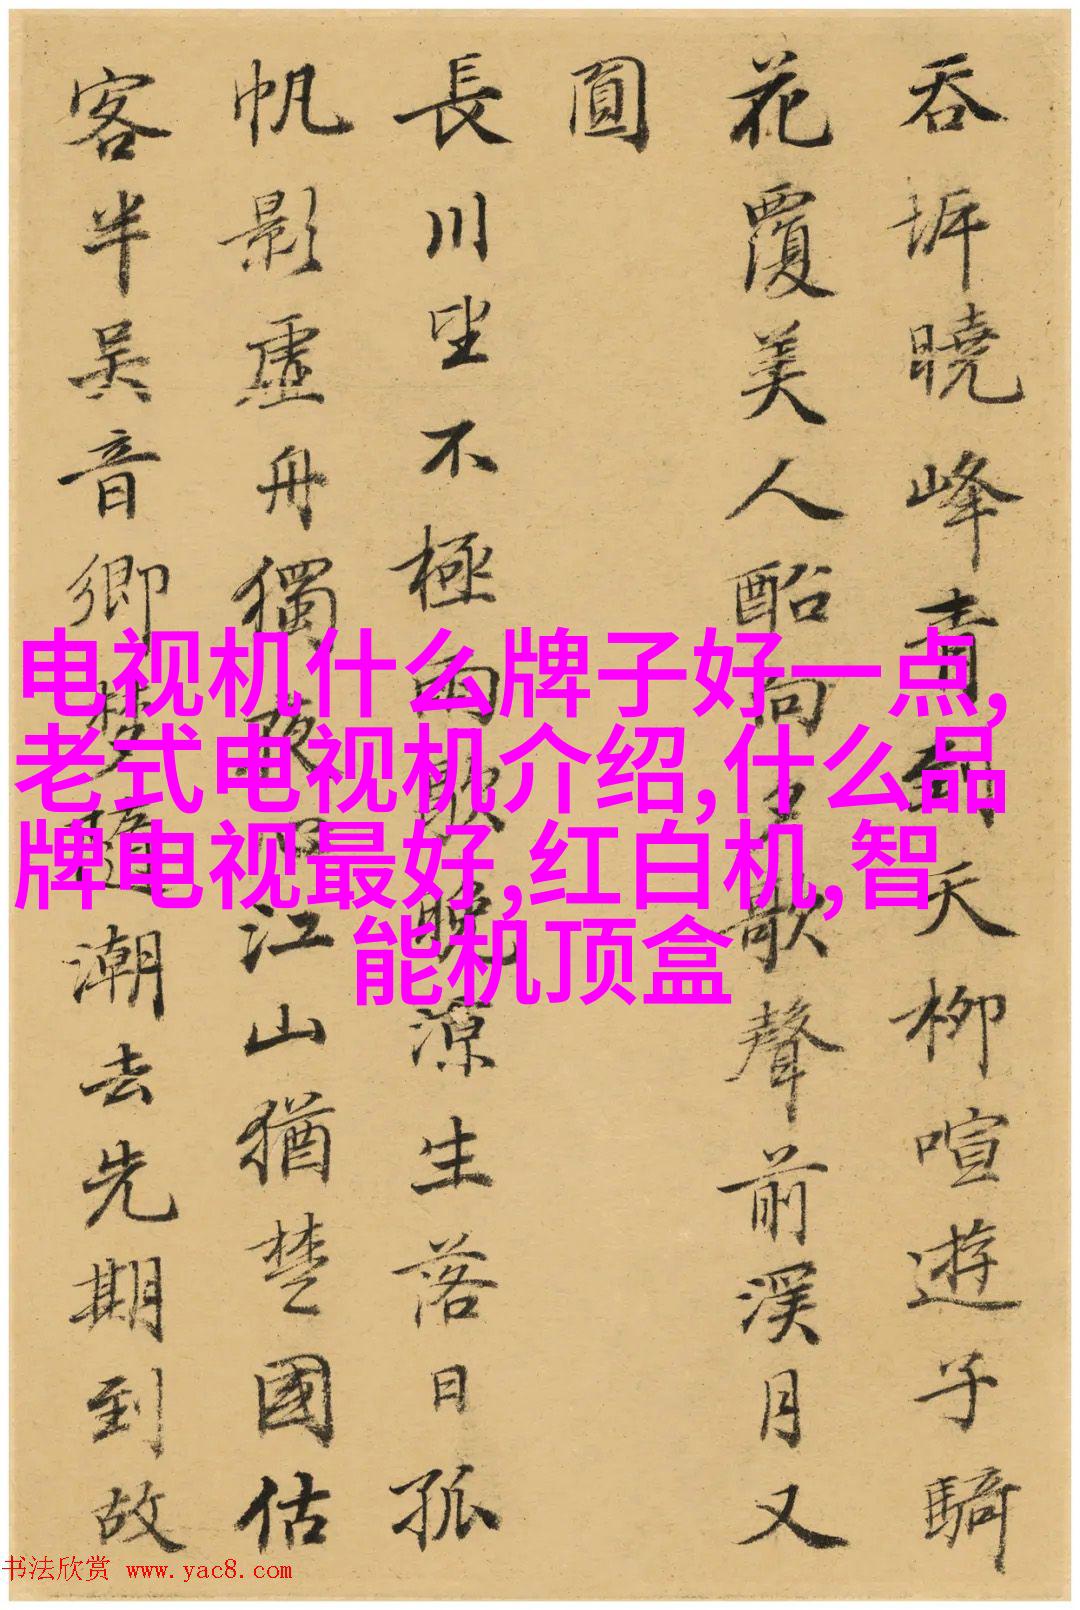 吞圻曉峰青到天柳喧遊子騎
花覆美人酩向夕歌聲前溪月又
圓
長川望不極雨歇晚涼生落日孤
帆影虛舟獨夜情江山猶楚國估
客半吳音鄉夢隨潮去先期到故
电视机什么牌子好一点,
老式电视机介绍,什么品
牌电视最好,红白机,智
能机顶盒
书法欣赏 www.yac8.com